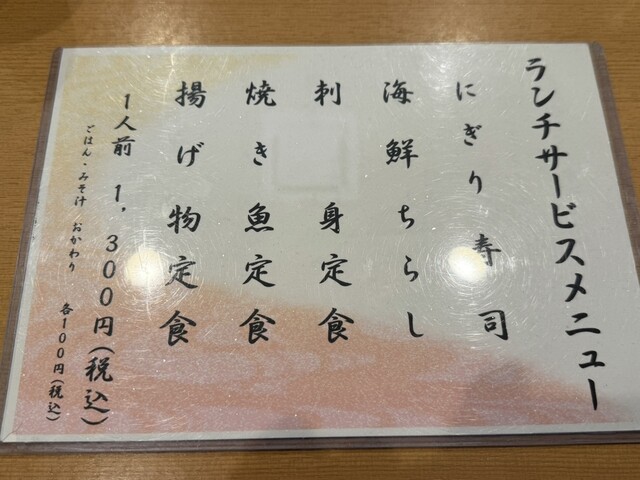 ランチサービスメニュー
にぎり寿司
海鮮ちらし
刺身定食
焼き魚定食
揚げ物定食
1人前 1,300円(税込)
ごはん・みそ汁 おかわり 各100円(税込)